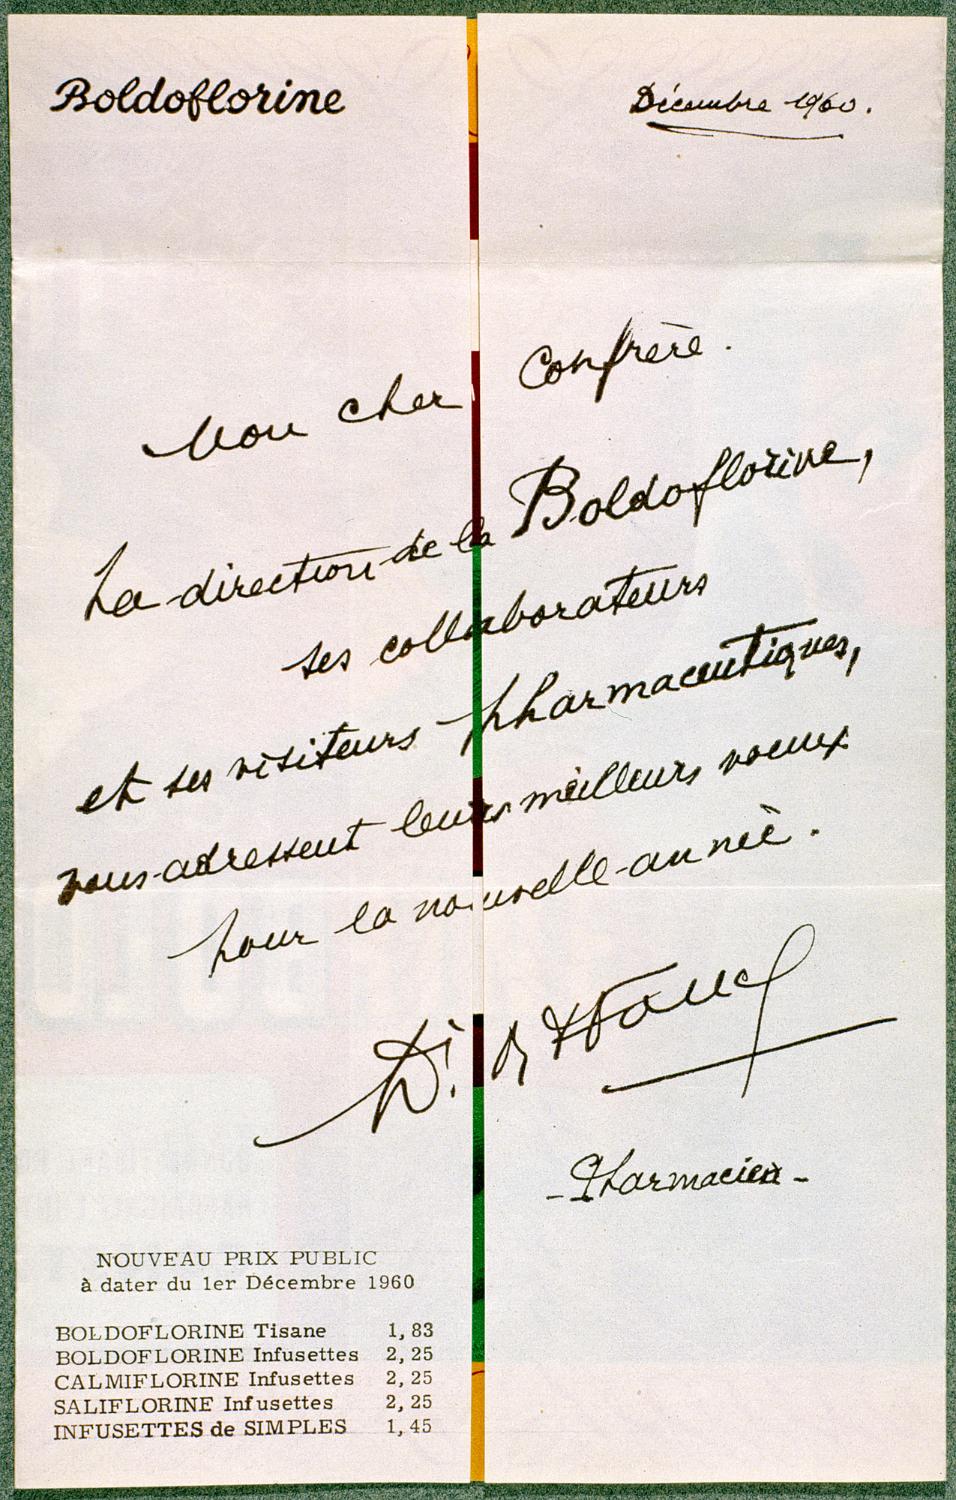 Boldoflorine
Décembre 1960.
Mon cher Confrère.
La direction de la Boldoflorine,
ses collaborateurs
et ses visiteurs pharmaceutiques,
vous adressent leurs meilleurs voeux
pour la nouvelle année.
- Pharmacien -
NOUVEAU PRIX PUBLIC
à dater du 1er Décembre 1960
BOLDOFLORINE Tisane 1,83
BOLDOFLORINE Infusettes 2,25
CALMIFLORINE Infusettes 2,25
SALIFLORINE Infusettes 2,25
INFUSETTES de SIMPLES 1,45